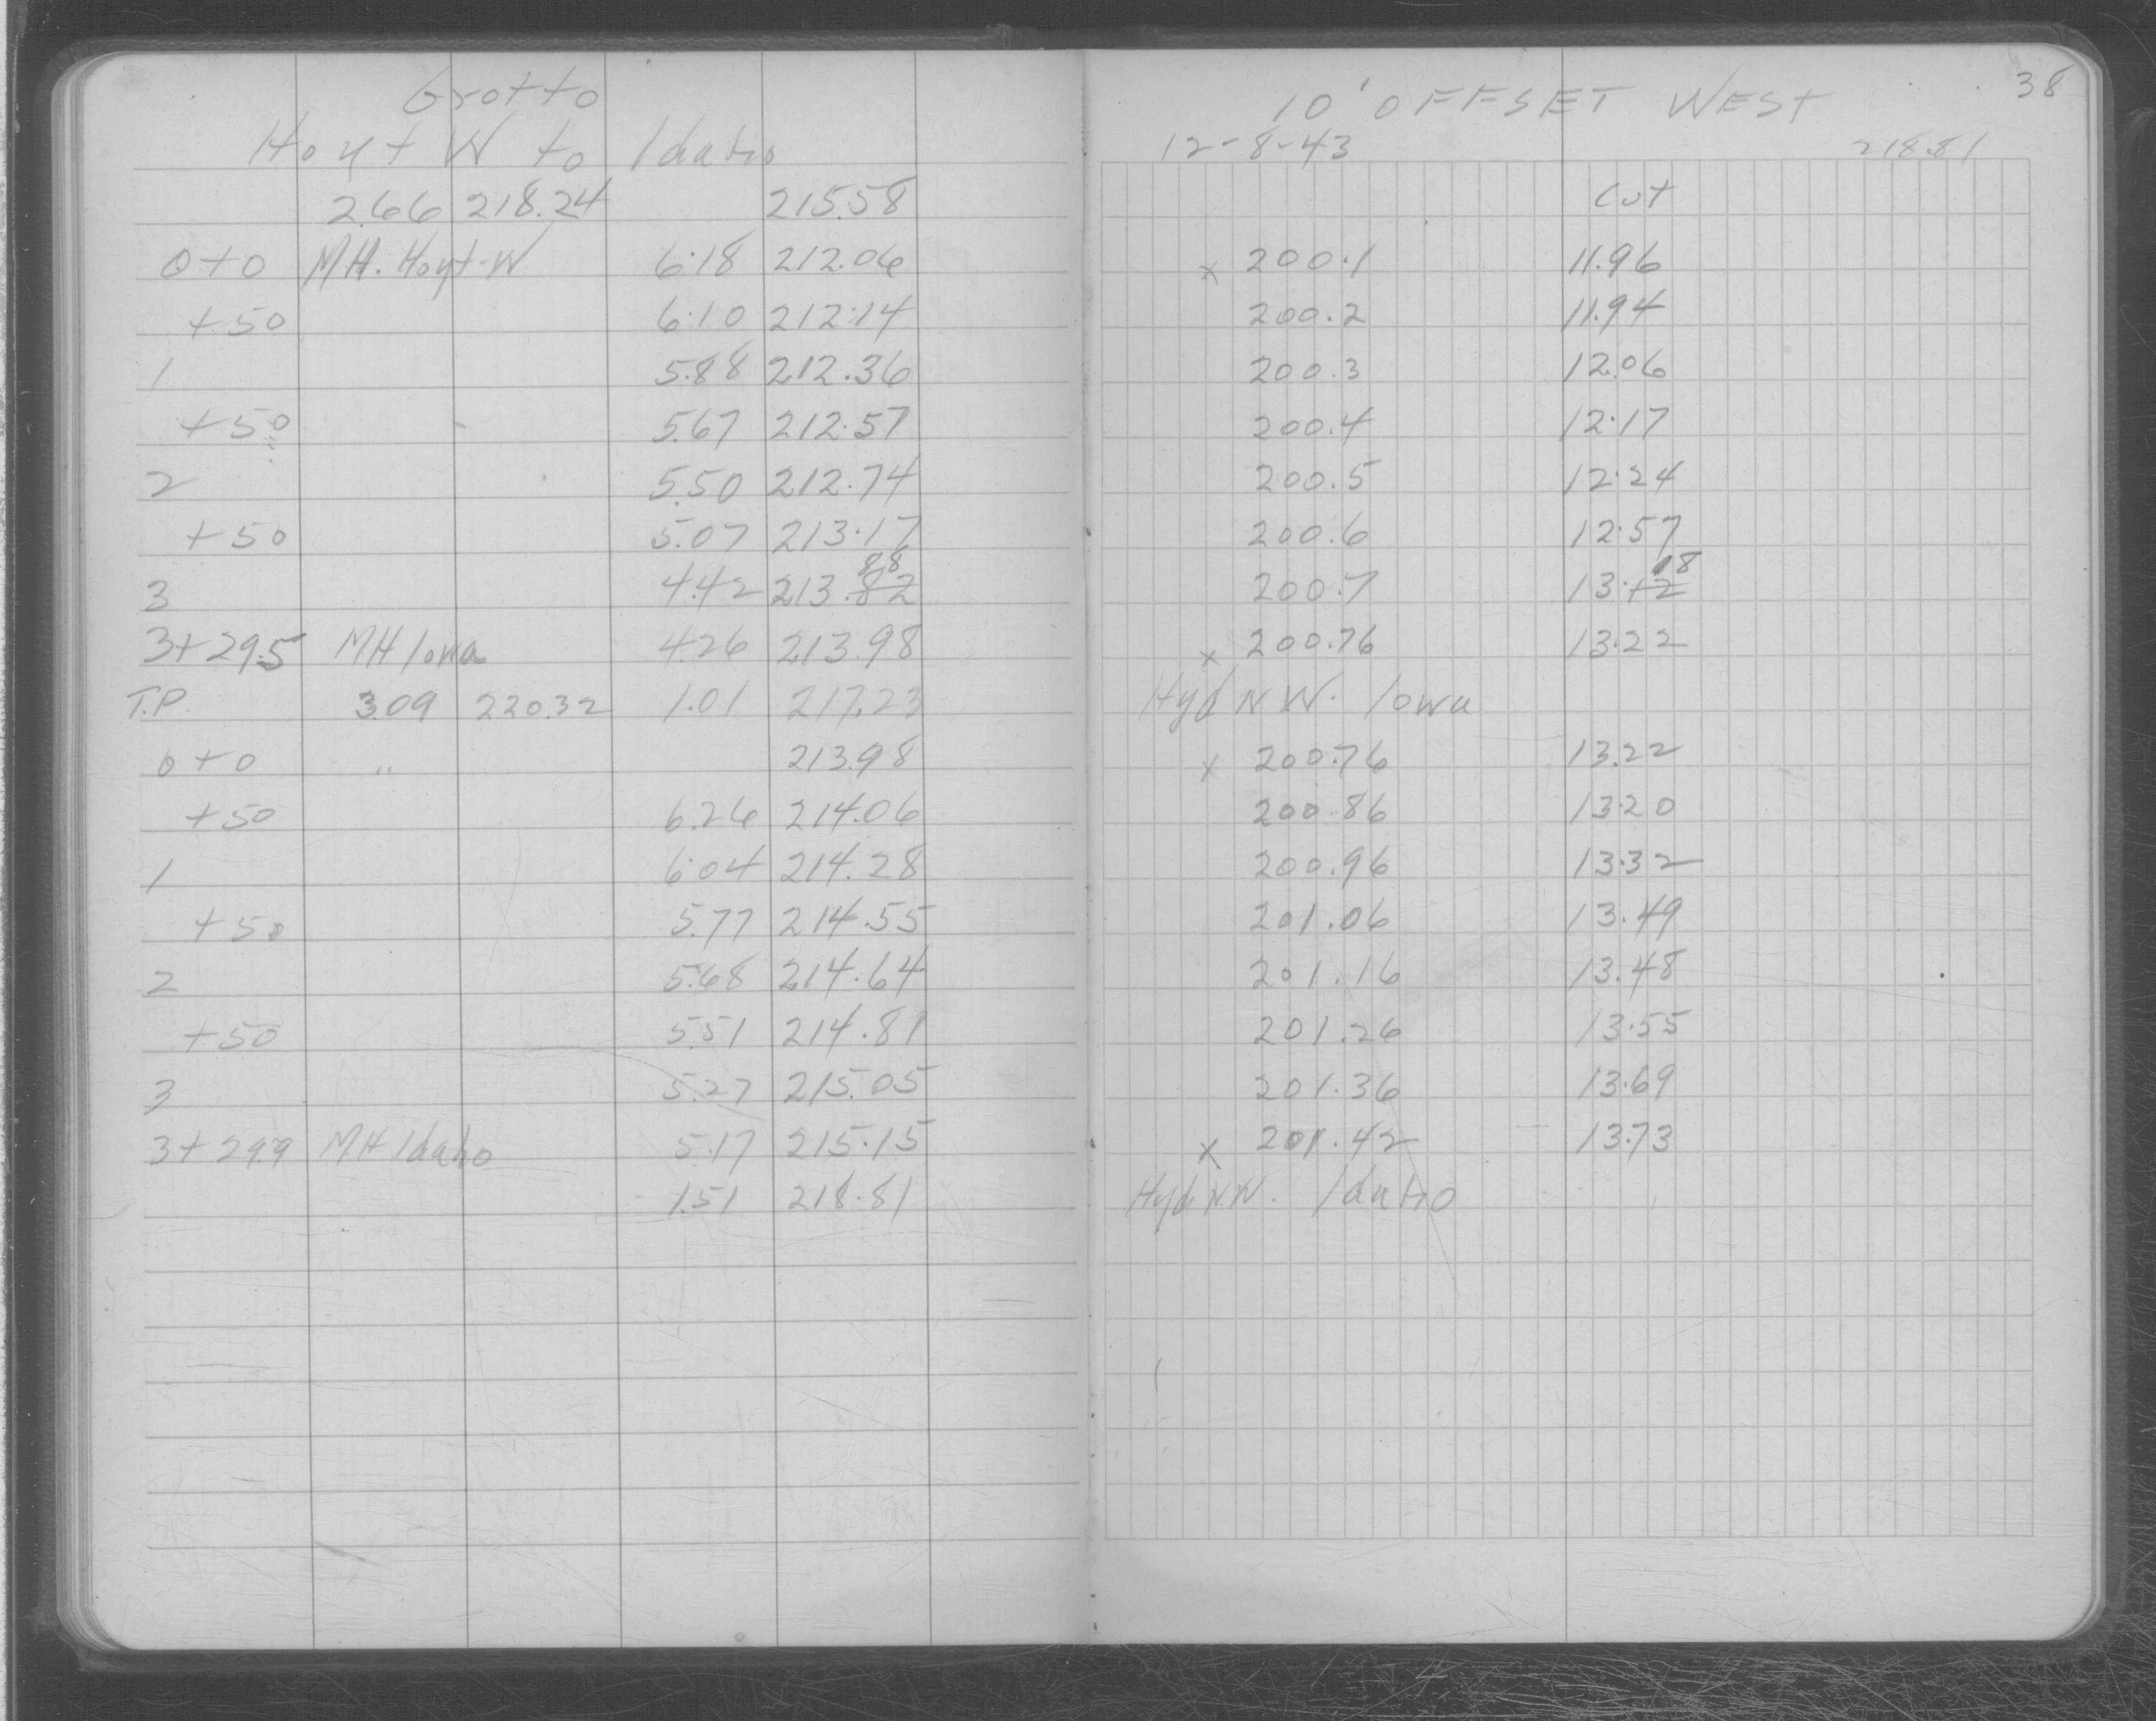 Grotto
Hoyt W to Idaho
2.66 218.24 215.58
0+0 MH. Hoyt-W 6.18 212.06
+50 6.10 212.14
1 5.88 212.36
+50 5.67 212.57
2 5.50 212.74
+50 5.07 213.17
88
3 4.42 213.82
3+29.5 MH Iowa 4.26 213.98
T.P. 3.09 220.32 1.01 217.23
0+0 " 213.98
+50 6.26 214.06
1 6.04 214.28
+50 5.77 214.55
2 5.68 214.64
+50 5.51 214.81
3 5.27 215.05
3+29.9 MH Idaho 5.17 215.15
1.51 218.81
38
10' OFFSET WEST
12-8-43 218.81
Cut
x 200.1 11.96
200.2 11.94
200.3 12.06
200.4 12.17
200.5 12.24
200.6 12.57
18
200.7 13.12
x 200.76 13.22
Hyd N W. Iowa
x 200.76 13.22
200.86 13.20
200.96 13.32
201.06 13.49
201.16 13.48
201.26 13.55
201.36 13.69
x 201.42 13.73
Hyd N.W. Idaho